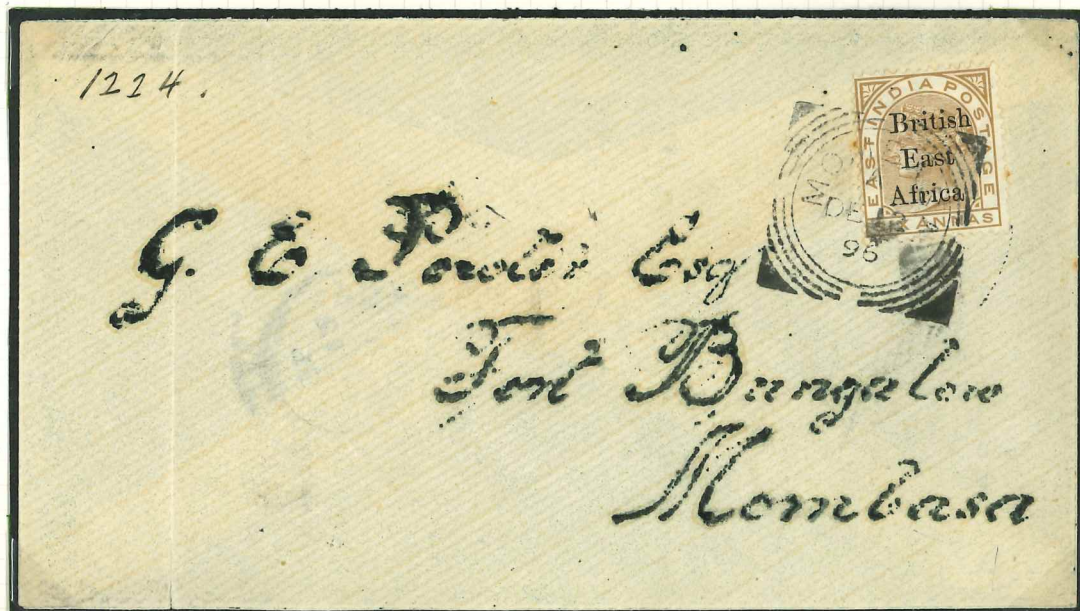 1224.
EAST INDIA POSTAGE
British
East
Africa
SIX ANNAS
DE
96
G. E Esq
Fort Bungalow
Mombasa